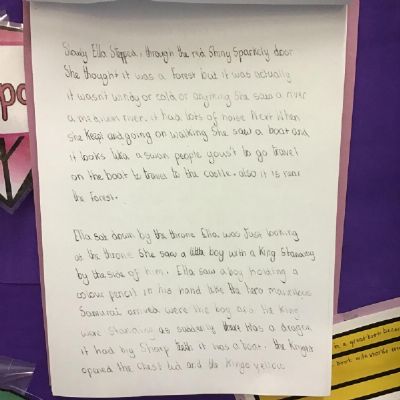 Slowly Ella Stepped, through the red Shiny Sparkely door
She thought it was a forest but it was actually
it wasn't windy or cold or anything She saw a river
a river. it had lots of noise Next When
she Keept and going on walking She saw a boat and
it looks like a swan people yous't to go travel
on the boat to travel to the castle. also it is near
the forest.
Ella sat down by the throne Ella was Just looking
at the throne She saw a little boy with a King Standing
by the side of him. Ella saw a boy holding a
colour pencil in his hand like the hero
Samurai arrived were the boy and the King
were Standing as suddenly there was a dragon
it had big Sharp teeth it was a boat. the Kings
opened the Chest Lid and the Kings yellow